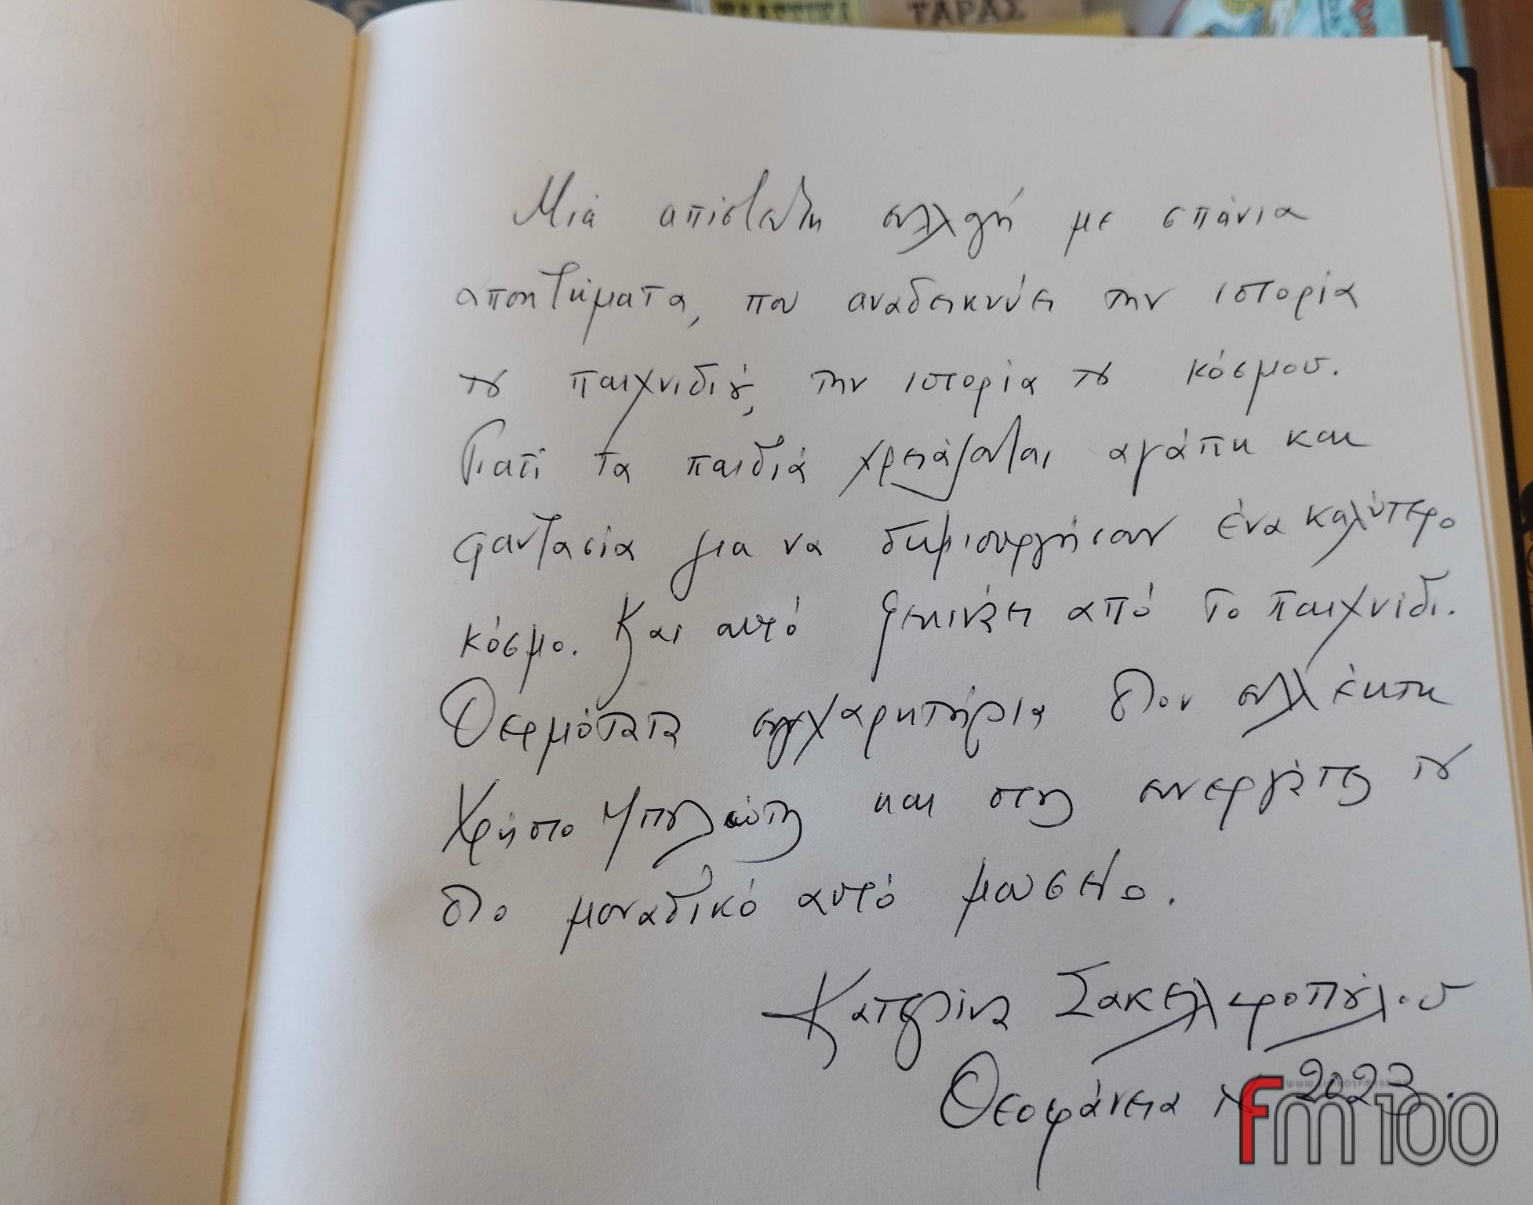 ΠΛΑΣΤΙΚΑ
ΤΑΡΑΣ
Μια απίστευτη συλλογή με σπάνια
αποκτήματα, που αναδεικνύει την ιστορία
του παιχνιδιού, την ιστορία του κόσμου.
Γιατί τα παιδιά χρειάζονται αγάπη και
φαντασία για να δημιουργήσουν ένα καλύτερο
κόσμο. Και αυτό ξεκινάει από το παιχνίδι.
Θερμότατα συγχαρητήρια στον συλλέκτη
Χρήστο Μπουλώτη και στους συνεργάτες του
στο μοναδικό αυτό μουσείο.
Κατερίνα Σακελλαροπούλου
Θεοφάνεια 2023.
fm100